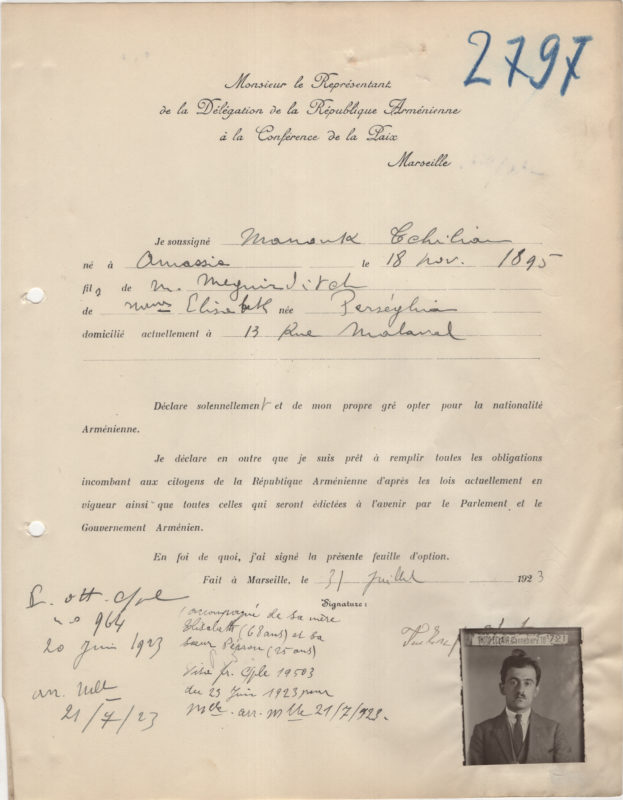 2797
Monsieur le Représentant
de la Délégation de la République Arménienne
à la Conférence de la Paix
Marseille
Je soussigné Manouk Tchilian
né à Amassia le 18 nov. 1895
fils de M. Meguirditch
de Elisabeth née
domicilié actuellement à 13 Rue Malaval
Déclare solennellement et de mon propre gré opter pour la nationalité
Arménienne.
Je déclare en outre que je suis prêt à remplir toutes les obligations
incombant aux citoyens de la République Arménienne d'après les lois actuellement en
vigueur ainsi que toutes celles qui seront édictées à l'avenir par le Parlement et le
Gouvernement Arménien.
En foi de quoi, j'ai signé la présente feuille d'option.
Fait à Marseille, le 31 Juillet 1923
Signature:
P. ott. Cple
no 964
20 Juin 1923
arr. Mlle
21/7/23
accompagné de sa mère
Elisabeth (68 ans) et sa
sœur (25 ans)
Visa fr. Cple 19503
du 23 Juin 1923 pour
Mlle. arr. Mlle 21/7/923.